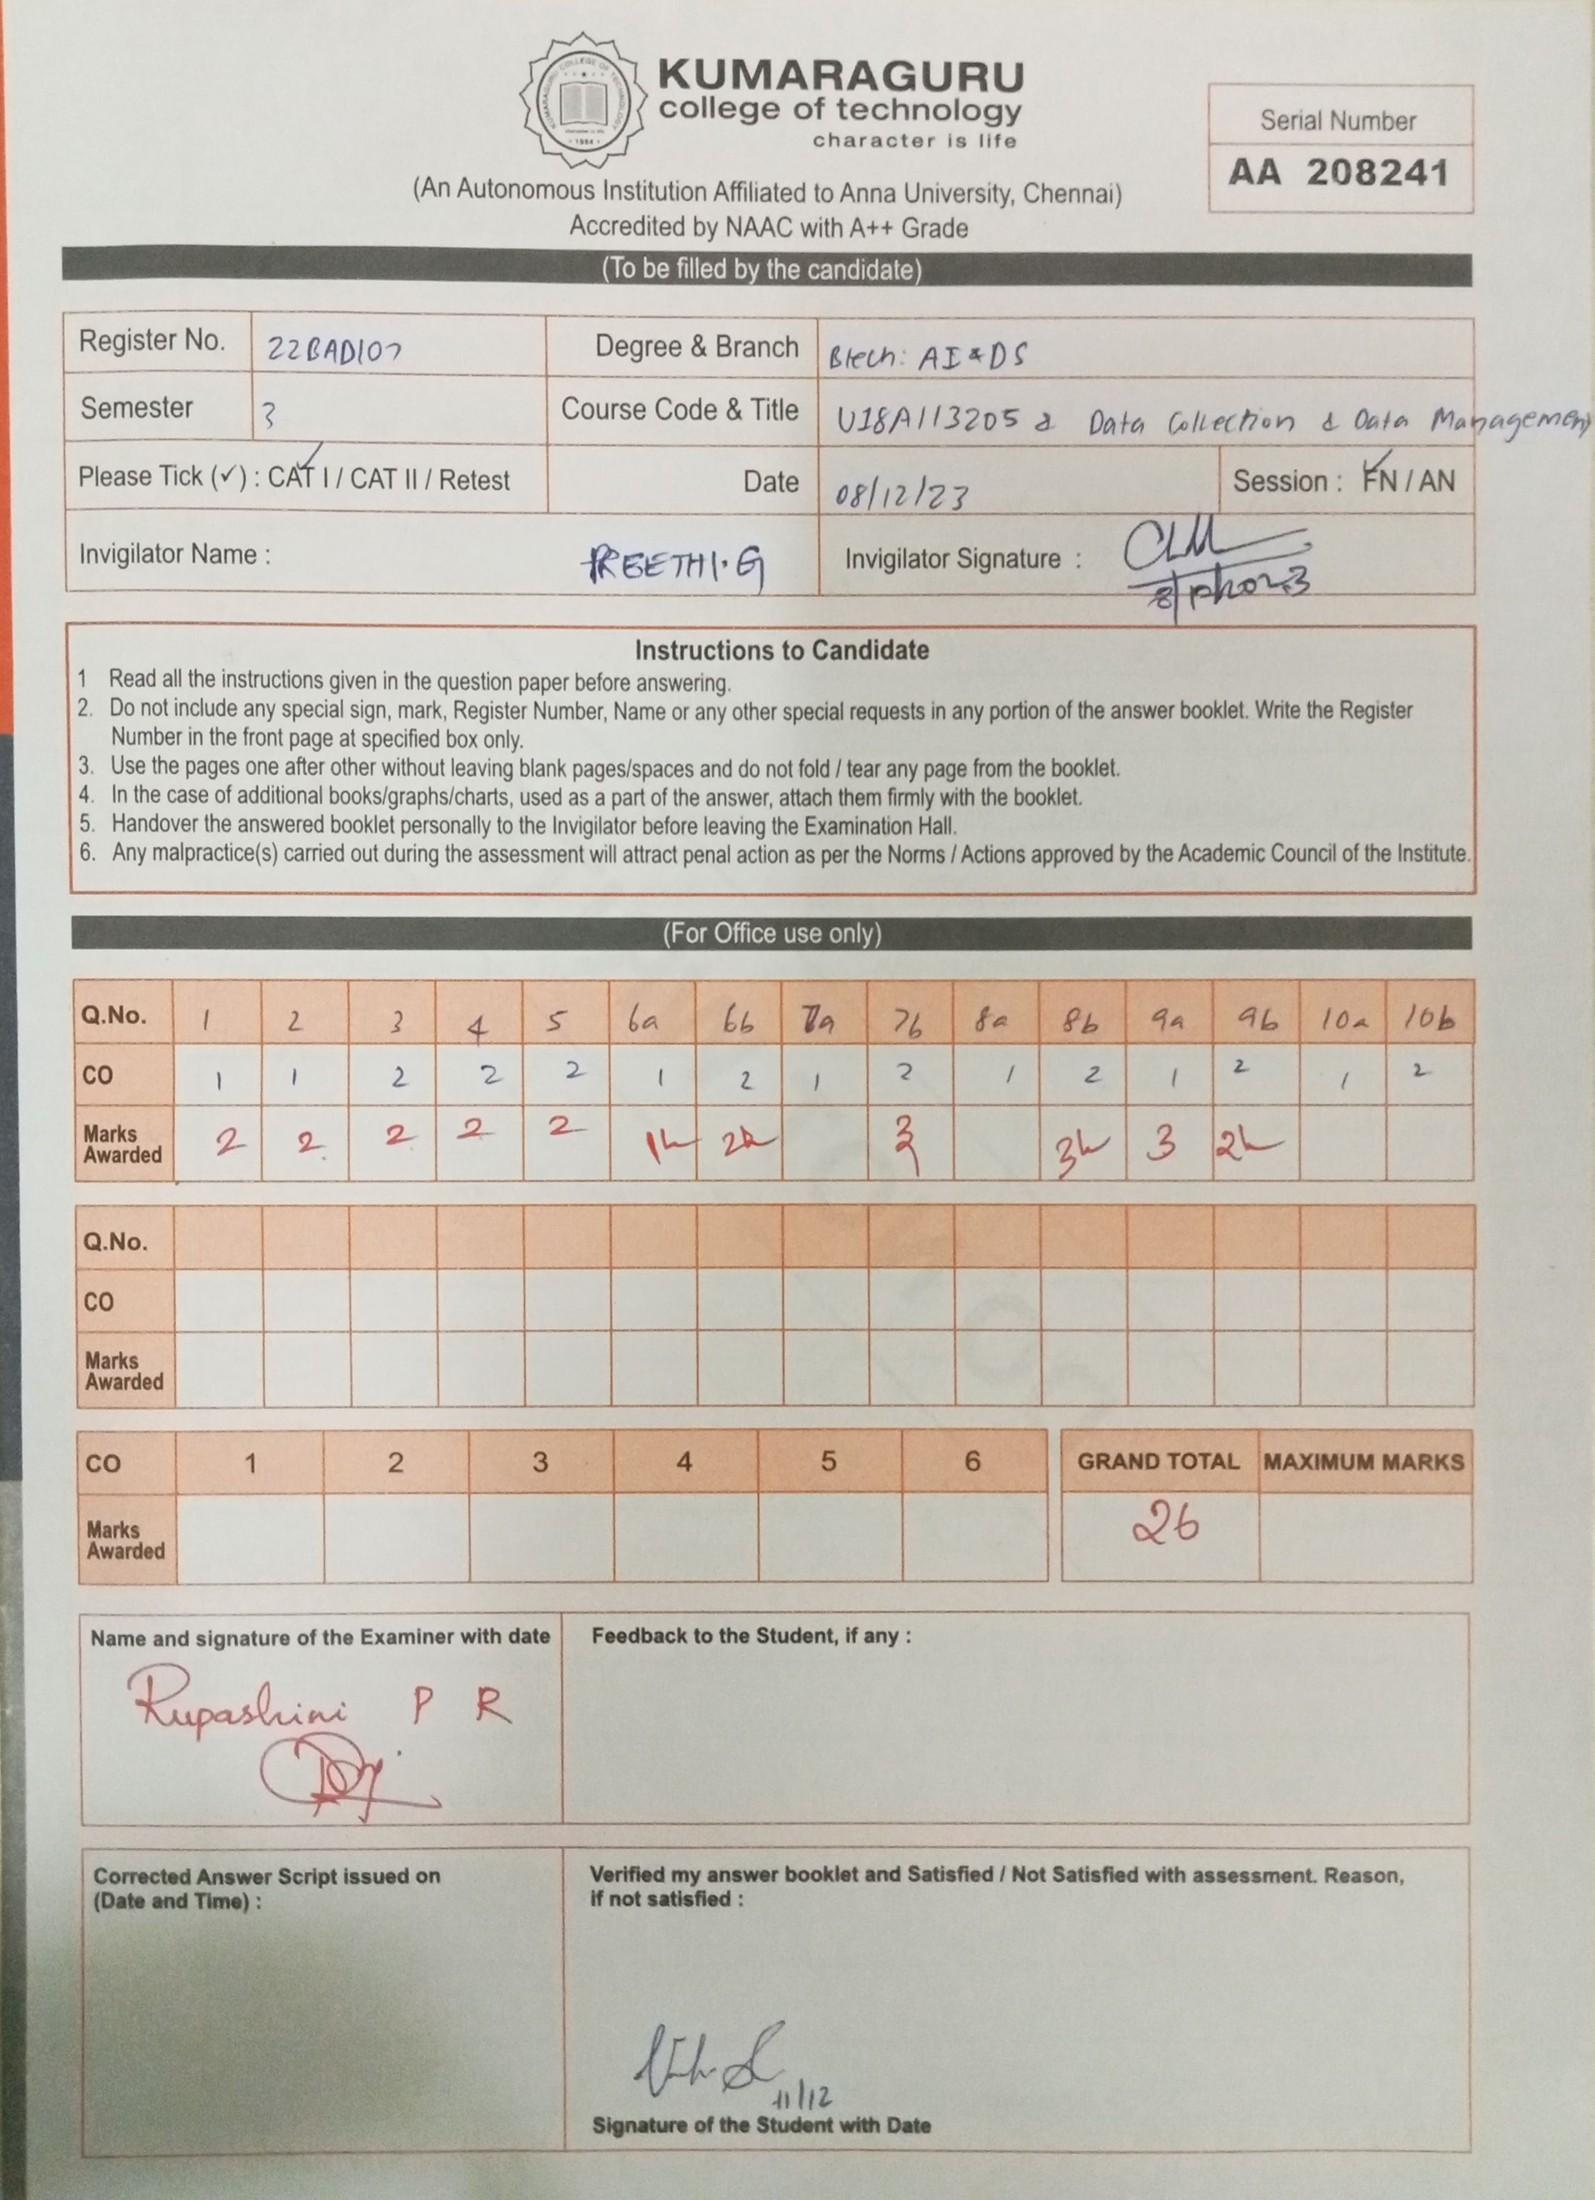 KUMARAGURU
college of technology
character is life
KUMARAGURU COLLEGE OF TECHNOLOGY
character is life
1984
Serial Number
AA 208241
(An Autonomous Institution Affiliated to Anna University, Chennai)
Accredited by NAAC with A++ Grade
(To be filled by the candidate)
Register No. 22BAD107 Degree & Branch Btech: AI & DS
Semester 3 Course Code & Title U18AI13205 & Data Collection & Data Management
Please Tick (✓) : CAT I / CAT II / Retest Date 08/12/23 Session : FN / AN
Invigilator Name : PREETHI.G Invigilator Signature :
Instructions to Candidate
1 Read all the instructions given in the question paper before answering.
2. Do not include any special sign, mark, Register Number, Name or any other special requests in any portion of the answer booklet. Write the Register
Number in the front page at specified box only.
3. Use the pages one after other without leaving blank pages/spaces and do not fold / tear any page from the booklet.
4. In the case of additional books/graphs/charts, used as a part of the answer, attach them firmly with the booklet.
5. Handover the answered booklet personally to the Invigilator before leaving the Examination Hall.
6. Any malpractice(s) carried out during the assessment will attract penal action as per the Norms / Actions approved by the Academic Council of the Institute.
(For Office use only)
Q.No. 1 2 3 4 5 6a 6b 7a 7b 8a 8b 9a 9b 10a 10b
CO 1 1 2 2 2 1 2 1 2 1 2 1 2 1 2
Marks
Awarded 2 2 2 2 2 3 3
Q.No.
CO
Marks
Awarded
CO 1 2 3 4 5 6 GRAND TOTAL MAXIMUM MARKS
Marks
Awarded 26
Name and signature of the Examiner with date Feedback to the Student, if any :
Rupashini P R
Corrected Answer Script issued on
(Date and Time) :
Verified my answer booklet and Satisfied / Not Satisfied with assessment. Reason,
if not satisfied :
11/12
Signature of the Student with Date